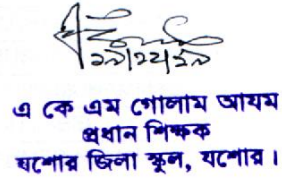 এ কে এম গোলাম আযম
প্রধান শিক্ষক
যশোর জিলা স্কুল, যশোর।